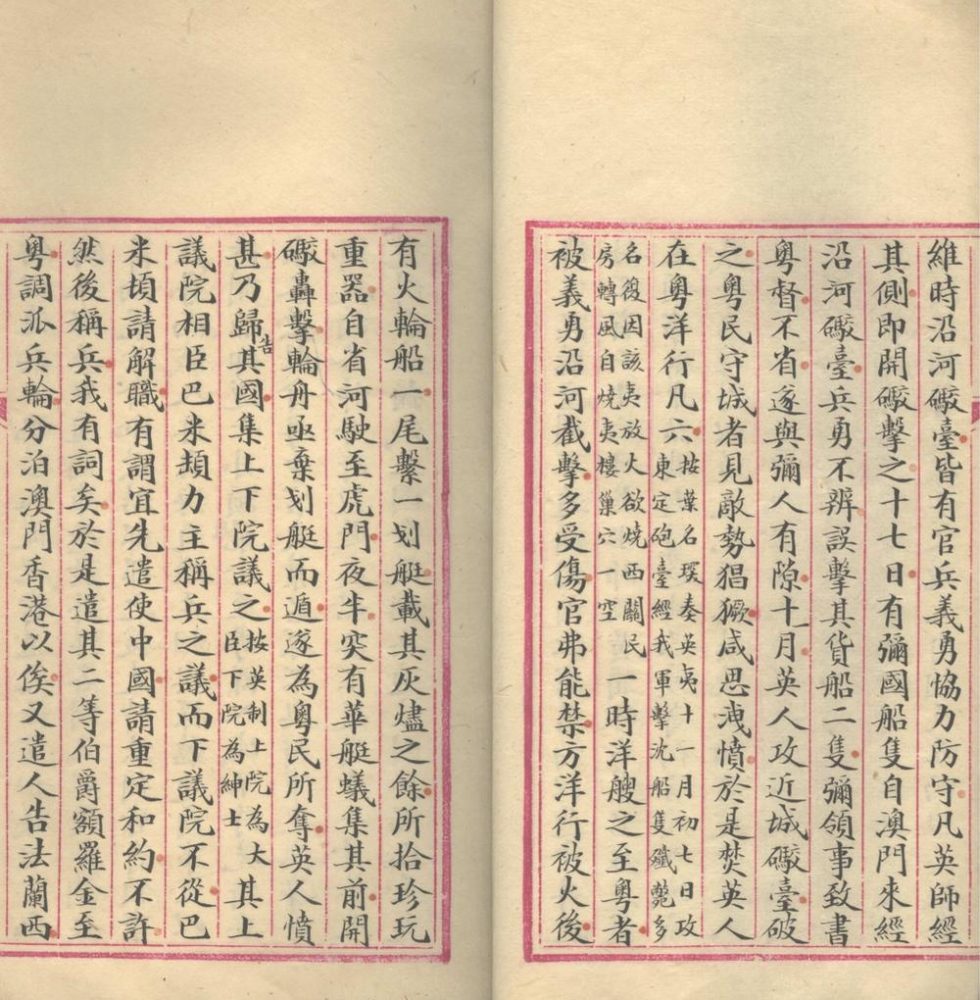 維時沿河礮臺皆有官兵義勇協力防守凡英師經
其側即開礮擊之十七日有彌國船隻自澳門來經
沿河礮臺兵勇不辨誤擊其貨船二隻彌領事致書
粵督不省遂與彌人有隙十月英人攻近城礮臺破
之粵民守城者見敵勢猖獗咸思洩憤於是焚英人
在粵洋行凡六按葉名琛奏英夷十一月初七日攻
東定砲臺經我軍擊沈船隻殲斃多
名復因該夷放火欲燒西關民
房轉風自燒夷樓巢穴一空
一時洋艘之至粵者
被義勇沿河截擊多受傷官弗能禁方洋行被火後
有火輪船一尾繫一划艇載其灰燼之餘所拾珍玩
重器自省河駛至虎門夜半突有華艇蟻集其前開
礮轟擊輪舟亟棄划艇而遁遂為粵民所奪英人憤
甚乃歸告其國集上下院議之按英制上院為大
臣下院為紳士
其上
議院相臣巴米頓力主稱兵之議而下議院不從巴
米頓請解職有謂宜先遣使中國請重定和約不許
然後稱兵我有詞矣於是遣其二等伯爵額羅金至
粵調派兵輪分泊澳門香港以俟又遣人告法蘭西